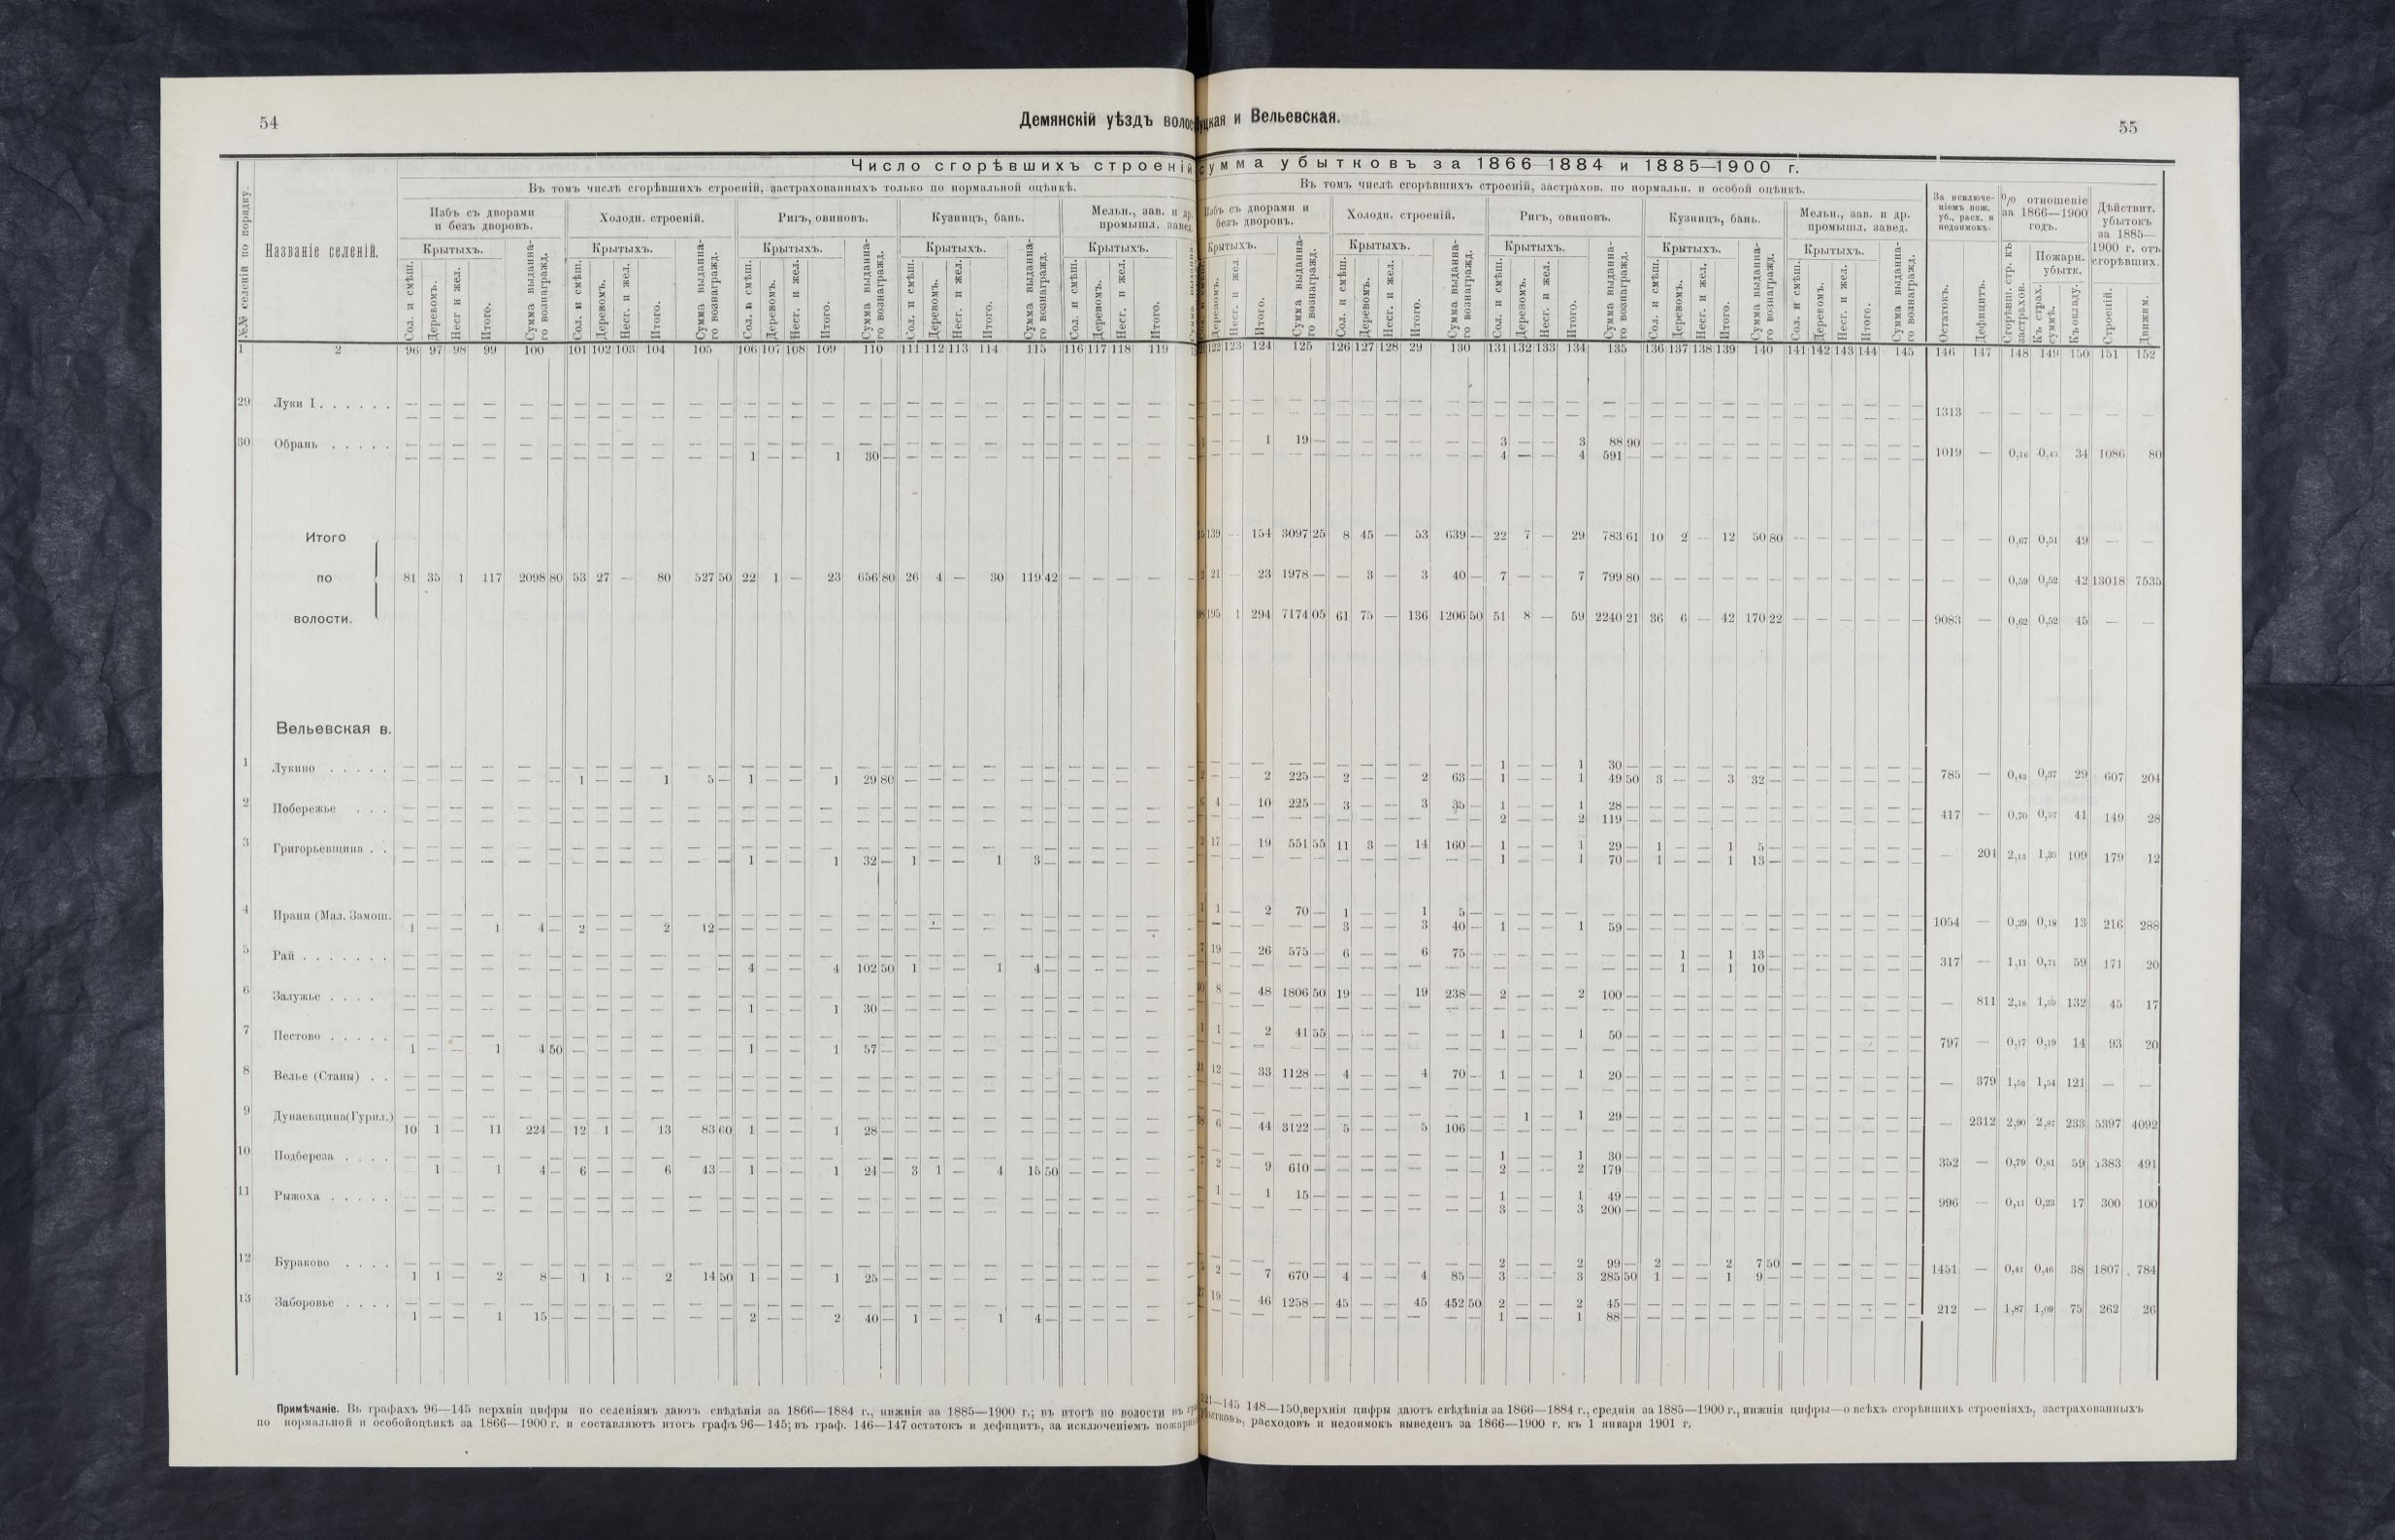 54
Демянскій уѣздъ волос
уцкая и Вельевская.
55
Число сгорѣвшихъ строеній
сумма убытковъ за 1866—1884 и 1885—1900 г.
№№ селеній по порядку.
Названіе селеній.
Въ томъ числѣ сгорѣвшихъ строеній, застрахованныхъ только по нормальной оцѣнкѣ.
Въ томъ числѣ сгорѣвшихъ строеній, застрахов. по нормальн. и особой оцѣнкѣ.
Избъ съ дворами и безъ дворовъ. Холодн. строеній. Ригъ, овиновъ. Кузницъ, бань. Мельн., зав. и др. промышл. завед.
Избъ съ дворами и безъ дворовъ. Холодн. строеній. Ригъ, овиновъ. Кузницъ, бань. Мельн., зав. и др. промышл. завед.
За исключеніемъ пож. уб., расх. и недоимокъ.
% отношеніе за 1866—1900 годъ.
Дѣйствит. убытокъ за 1885—1900 г. отъ сгорѣвшихъ.
Крытыхъ. Крытыхъ. Крытыхъ. Крытыхъ. Крытыхъ.
Крытыхъ. Крытыхъ. Крытыхъ. Крытыхъ. Крытыхъ.
Пожарн. убытк.
Сол. и смѣш. Деревомъ. Несг и жел. Итого. Сумма выданнаго вознагражд.
Сол. и смѣш. Деревомъ. Несг. и жел. Итого. Сумма выданнаго вознагражд.
Сол. и смѣш. Деревомъ. Несг. и жел. Итого. Сумма выданнаго вознагражд.
Сол. и смѣш. Деревомъ. Несг. и жел. Итого. Сумма выданнаго вознагражд.
Сол. и смѣш. Деревомъ. Несг. и жел. Итого.
Деревомъ. Несг. и жел. Итого. Сумма выданнаго вознагражд.
Сол. и смѣш. Деревомъ. Несг. и жел. Итого. Сумма выданнаго вознагражд.
Сол. и смѣш. Деревомъ. Несг. и жел. Итого. Сумма выданнаго вознагражд.
Сол. и смѣш. Деревомъ. Несг. и жел. Итого. Сумма выданнаго вознагражд.
Сол. и смѣш. Деревомъ. Несг. и жел. Итого. Сумма выданнаго вознагражд.
Остатокъ. Дефицитъ. Сгорѣвш. стр. къ застрахов. Къ страх. суммѣ. Къ окладу. Строеній. Движим.
1 2 96 97 98 99 100 101 102 103 104 105 106 107 108 109 110 111 112 113 114 115 116 117 118 119
122 123 124 125 126 127 128 29 130 131 132 133 134 135 136 137 138 139 140 141 142 143 144 145 146 147 148 149 150 151 152
29 Луки I . . . . . .
1313 — — — — — —
30 Обрань . . . . .
— — 1 19 — — — — — — 3 — — 3 88 90
1 — — 1 30 —
4 — — 4 591 —
1019 — 0,16 0,43 34 1086 80
Итого
139 — 154 3097 25 8 45 — 53 639 — 22 7 — 29 783 61 10 2 — 12 50 80 — — — — — — — 0,67 0,51 49 — —
по
81 35 1 117 2098 80 53 27 — 80 527 50 22 1 — 23 656 80 26 4 — 30 119 42 — — — —
21 — 23 1978 — — 3 — 3 40 — 7 — — 7 799 80 — — — — — — — — — — — — 0,59 0,52 42 13018 7535
волости.
195 1 294 7174 05 61 75 — 136 1206 50 51 8 — 59 2240 21 36 6 — 42 170 22 — — — — — 9083 — 0,62 0,52 45 — —
Вельевская в.
1 Лукино . . . . .
1 — — 1 30 —
1 — — 1 5 — 1 — — 1 29 80
— — 2 225 — 2 — — 2 63 — 1 — — 1 49 50 3 — — 3 32 —
785 — 0,43 0,37 29 607 204
2 Побережье . . .
4 — 10 225 — 3 — — 3 35 — 1 — — 1 28 —
2 — — 2 119 —
417 — 0,70 0,57 41 149 28
3 Григорьевщина . .
17 — 19 551 55 11 3 — 14 160 — 1 — — 1 29 — 1 — — 1 5 —
1 — — 1 32 — 1 — — 1 3 —
1 — — 1 70 — 1 — — 1 13 —
— 204 2,13 1,35 109 179 12
4 Ирани (Мал. Замош.
1 — 2 70 — 1 — — 1 5 —
1 — — 1 4 — 2 — — 2 12 —
3 — — 3 40 — 1 — — 1 59 —
1054 — 0,29 0,18 13 216 288
5 Рай . . . . . . .
19 — 26 575 — 6 — — 6 75 — — 1 — 1 13 —
4 — — 4 102 50 1 — — 1 4 —
— 1 — 1 10 —
317 — 1,11 0,71 59 171 20
6 Залужье . . . .
8 — 48 1806 50 19 — — 19 238 — 2 — — 2 100 —
1 — — 1 30 —
— 811 2,18 132 45 17
7 Пестово . . . . .
1 — 2 41 55 — — — — — 1 — — 1 50 —
1 — — 1 4 50 — — — — — 1 — — 1 57 —
797 — 0,17 0,19 14 93 20
8 Велье (Станы) . .
12 — 33 1128 — 4 — — 4 70 — 1 — — 1 20 —
— 379 1,53 1,54 121 — —
9 Дунаевщина(Гурил.)
— 1 — 1 29 —
10 1 — 11 224 — 12 1 — 13 83 60 1 — — 1 28 —
6 — 44 3122 — 5 — — 5 106 —
— 2312 2,90 2,87 233 5397 4092
10 Подбереза . . . .
1 — — 1 30 —
1 — 1 4 — 6 — — 6 43 — 1 — — 1 24 — 3 1 — 4 15 50
2 — 9 610 — — — — — — 2 — — 2 179 —
352 — 0,79 0,81 59 1383 491
11 Рыжоха . . . . .
1 — 1 15 — — — — — — 1 — — 1 49 —
3 — — 3 200 —
996 — 0,11 0,23 17 300 100
12 Бураково . . . .
2 — — 2 99 — 2 — — 2 7 50
1 1 — 2 8 — 1 1 — 2 14 50 1 — — 1 25 —
2 — 7 670 — 4 — — 4 85 — 3 — — 3 285 50 1 — — 1 9 —
1451 — 0,41 0,46 38 1807 784
13 Заборовье . . . .
19 — 46 1258 — 45 — — 45 452 50 2 — — 2 45 —
1 — — 1 15 — — — — — — 2 — — 2 40 — 1 — — 1 4 —
1 — — 1 88 —
212 — 1,87 1,09 75 262 26
Примѣчаніе. Въ графахъ 96—145 верхнія цифры по селеніямъ даютъ свѣдѣнія за 1866—1884 г., нижнія за 1885—1900 г.; въ итогѣ по волости въ
по нормальной и особойоцѣнкѣ за 1866—1900 г. и составляютъ итогъ графъ 96—145; въ граф. 146—147 остатокъ и дефицитъ, за исключеніемъ пожарн
—145 148—150,верхнія цифры даютъ свѣдѣнія за 1866—1884 г., среднія за 1885—1900 г., нижнія цифры—о всѣхъ сгорѣвшихъ строеніяхъ, застрахованныхъ
расходовъ и недоимокъ выведенъ за 1866—1900 г. къ 1 января 1901 г.